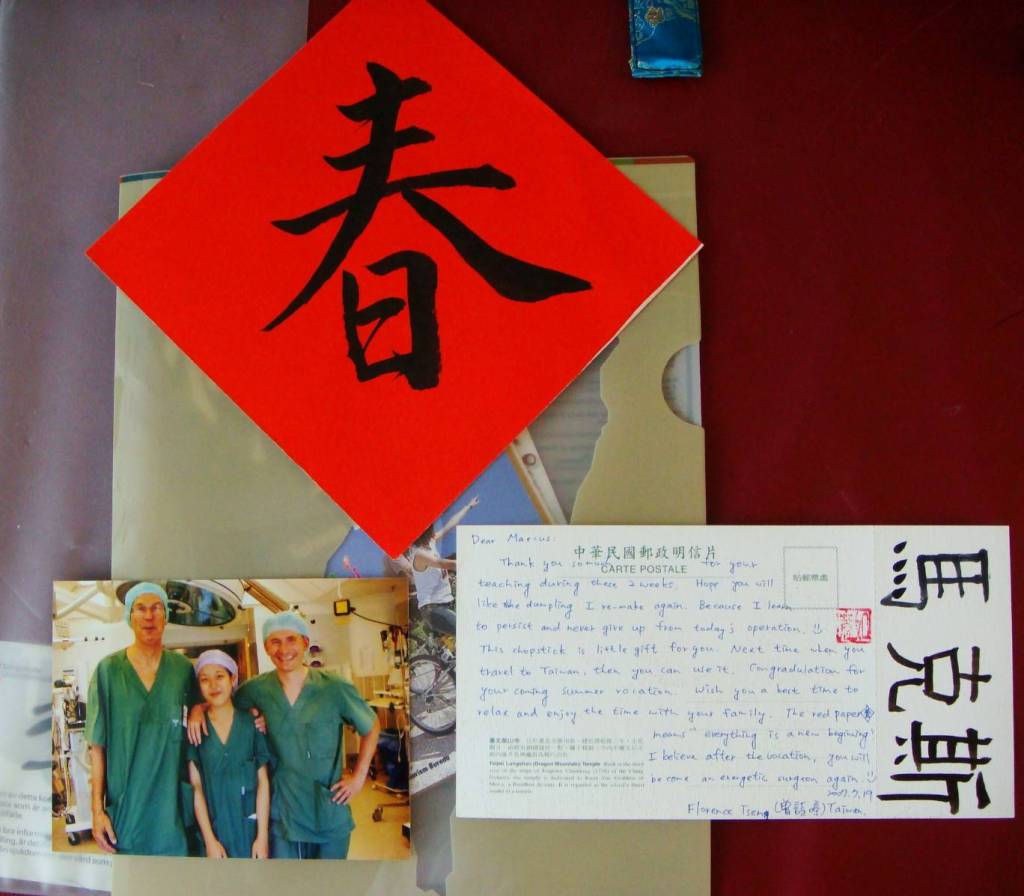 春
Dear Marcus:
中華民國郵政明信片
CARTE POSTALE
貼郵票處
Thank you so much for your
teaching during these 2 weeks. Hope you will
like the dumpling I re-make again. Because I learn
to persist and never give up from today's operation.
This chopstick is little gift for you. Next time when you
travel to Taiwan, then you can use it. Congradulation for
your coming summer vocation. Wish you a best time to
relax and enjoy the time with your family. The red paper 春
means "everything is a new beginning"
I believe after the vocation, you will
become an energetic surgeon again.
2007.7.19
Florence Tseng Taiwan.
馬克斯
Taipei Lungshan (Dragon Mountain) Temple